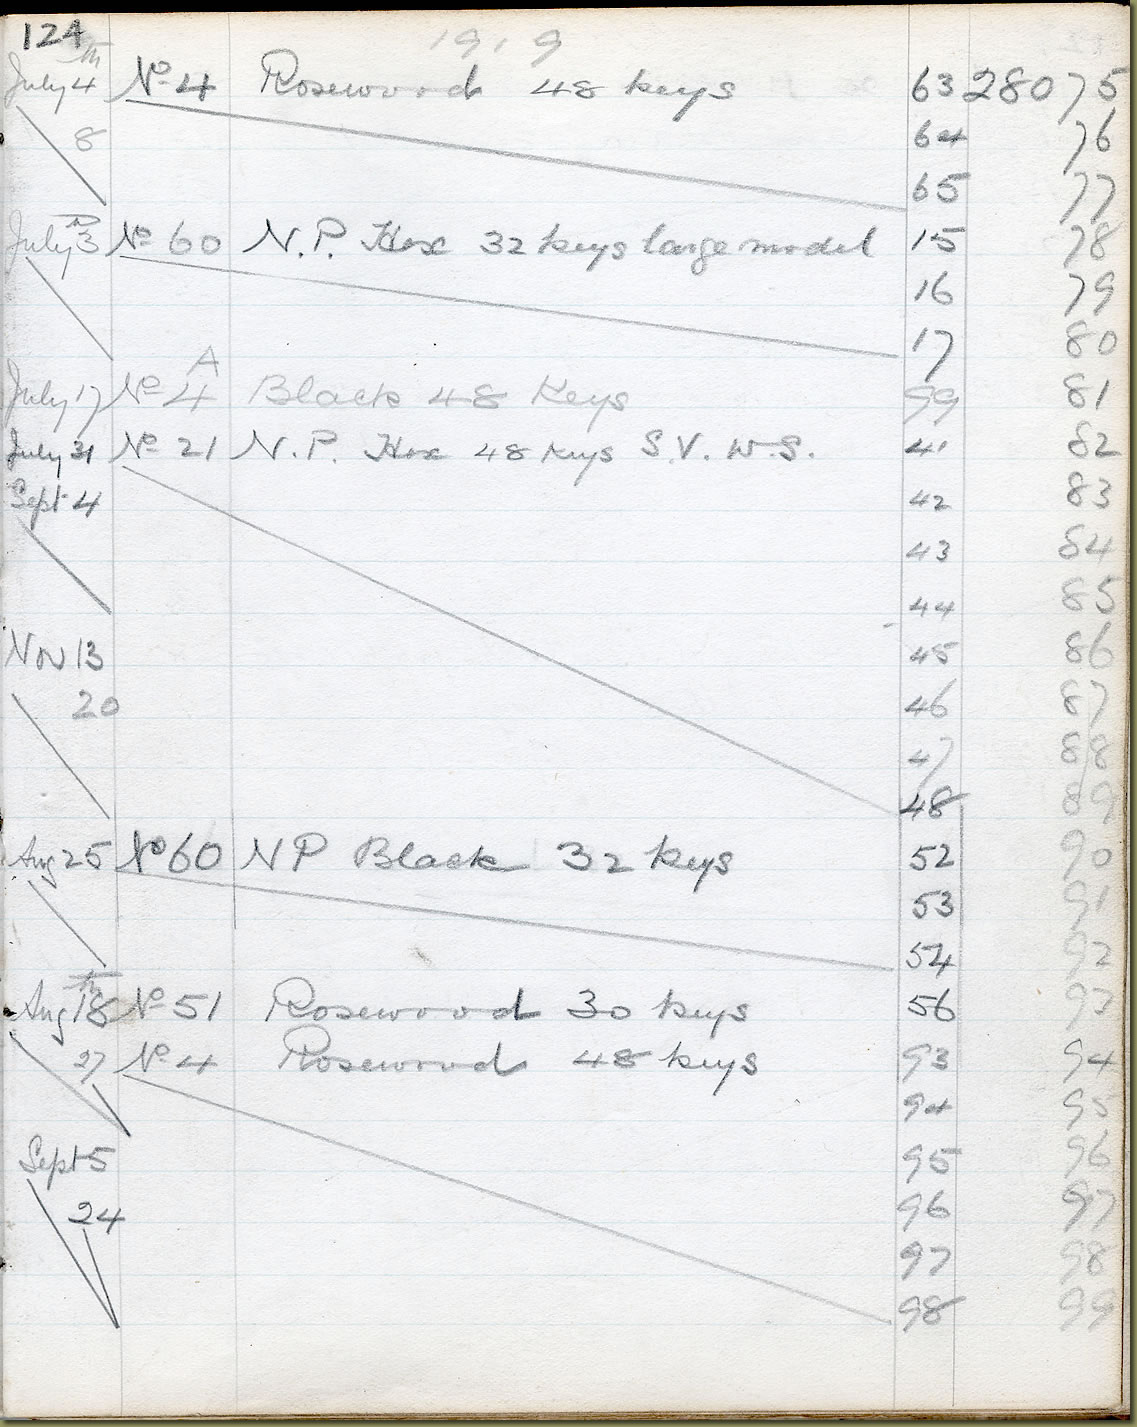 124
1919
July 4th No 4 Rosewood 48 keys 63 28075
8 64 76
65 77
July 3rd No 60 N.P. Hex 32 keys large model 15 78
16 79
17 80
July 17 No 4A Black 48 Keys 99 81
July 31 No 21 N.P. Hex 48 keys S.V. W.S. 41 82
Sept 4 42 83
43 84
44 85
Nov 13 45 86
20 46 87
47 88
48 89
Aug 25 No 60 NP Black 32 keys 52 90
53 91
54 92
Aug 18th No 51 Rosewood 30 keys 56 93
27 No 4 Rosewood 48 keys 93 94
94 95
Sept 5 95 96
24 96 97
97 98
98 99